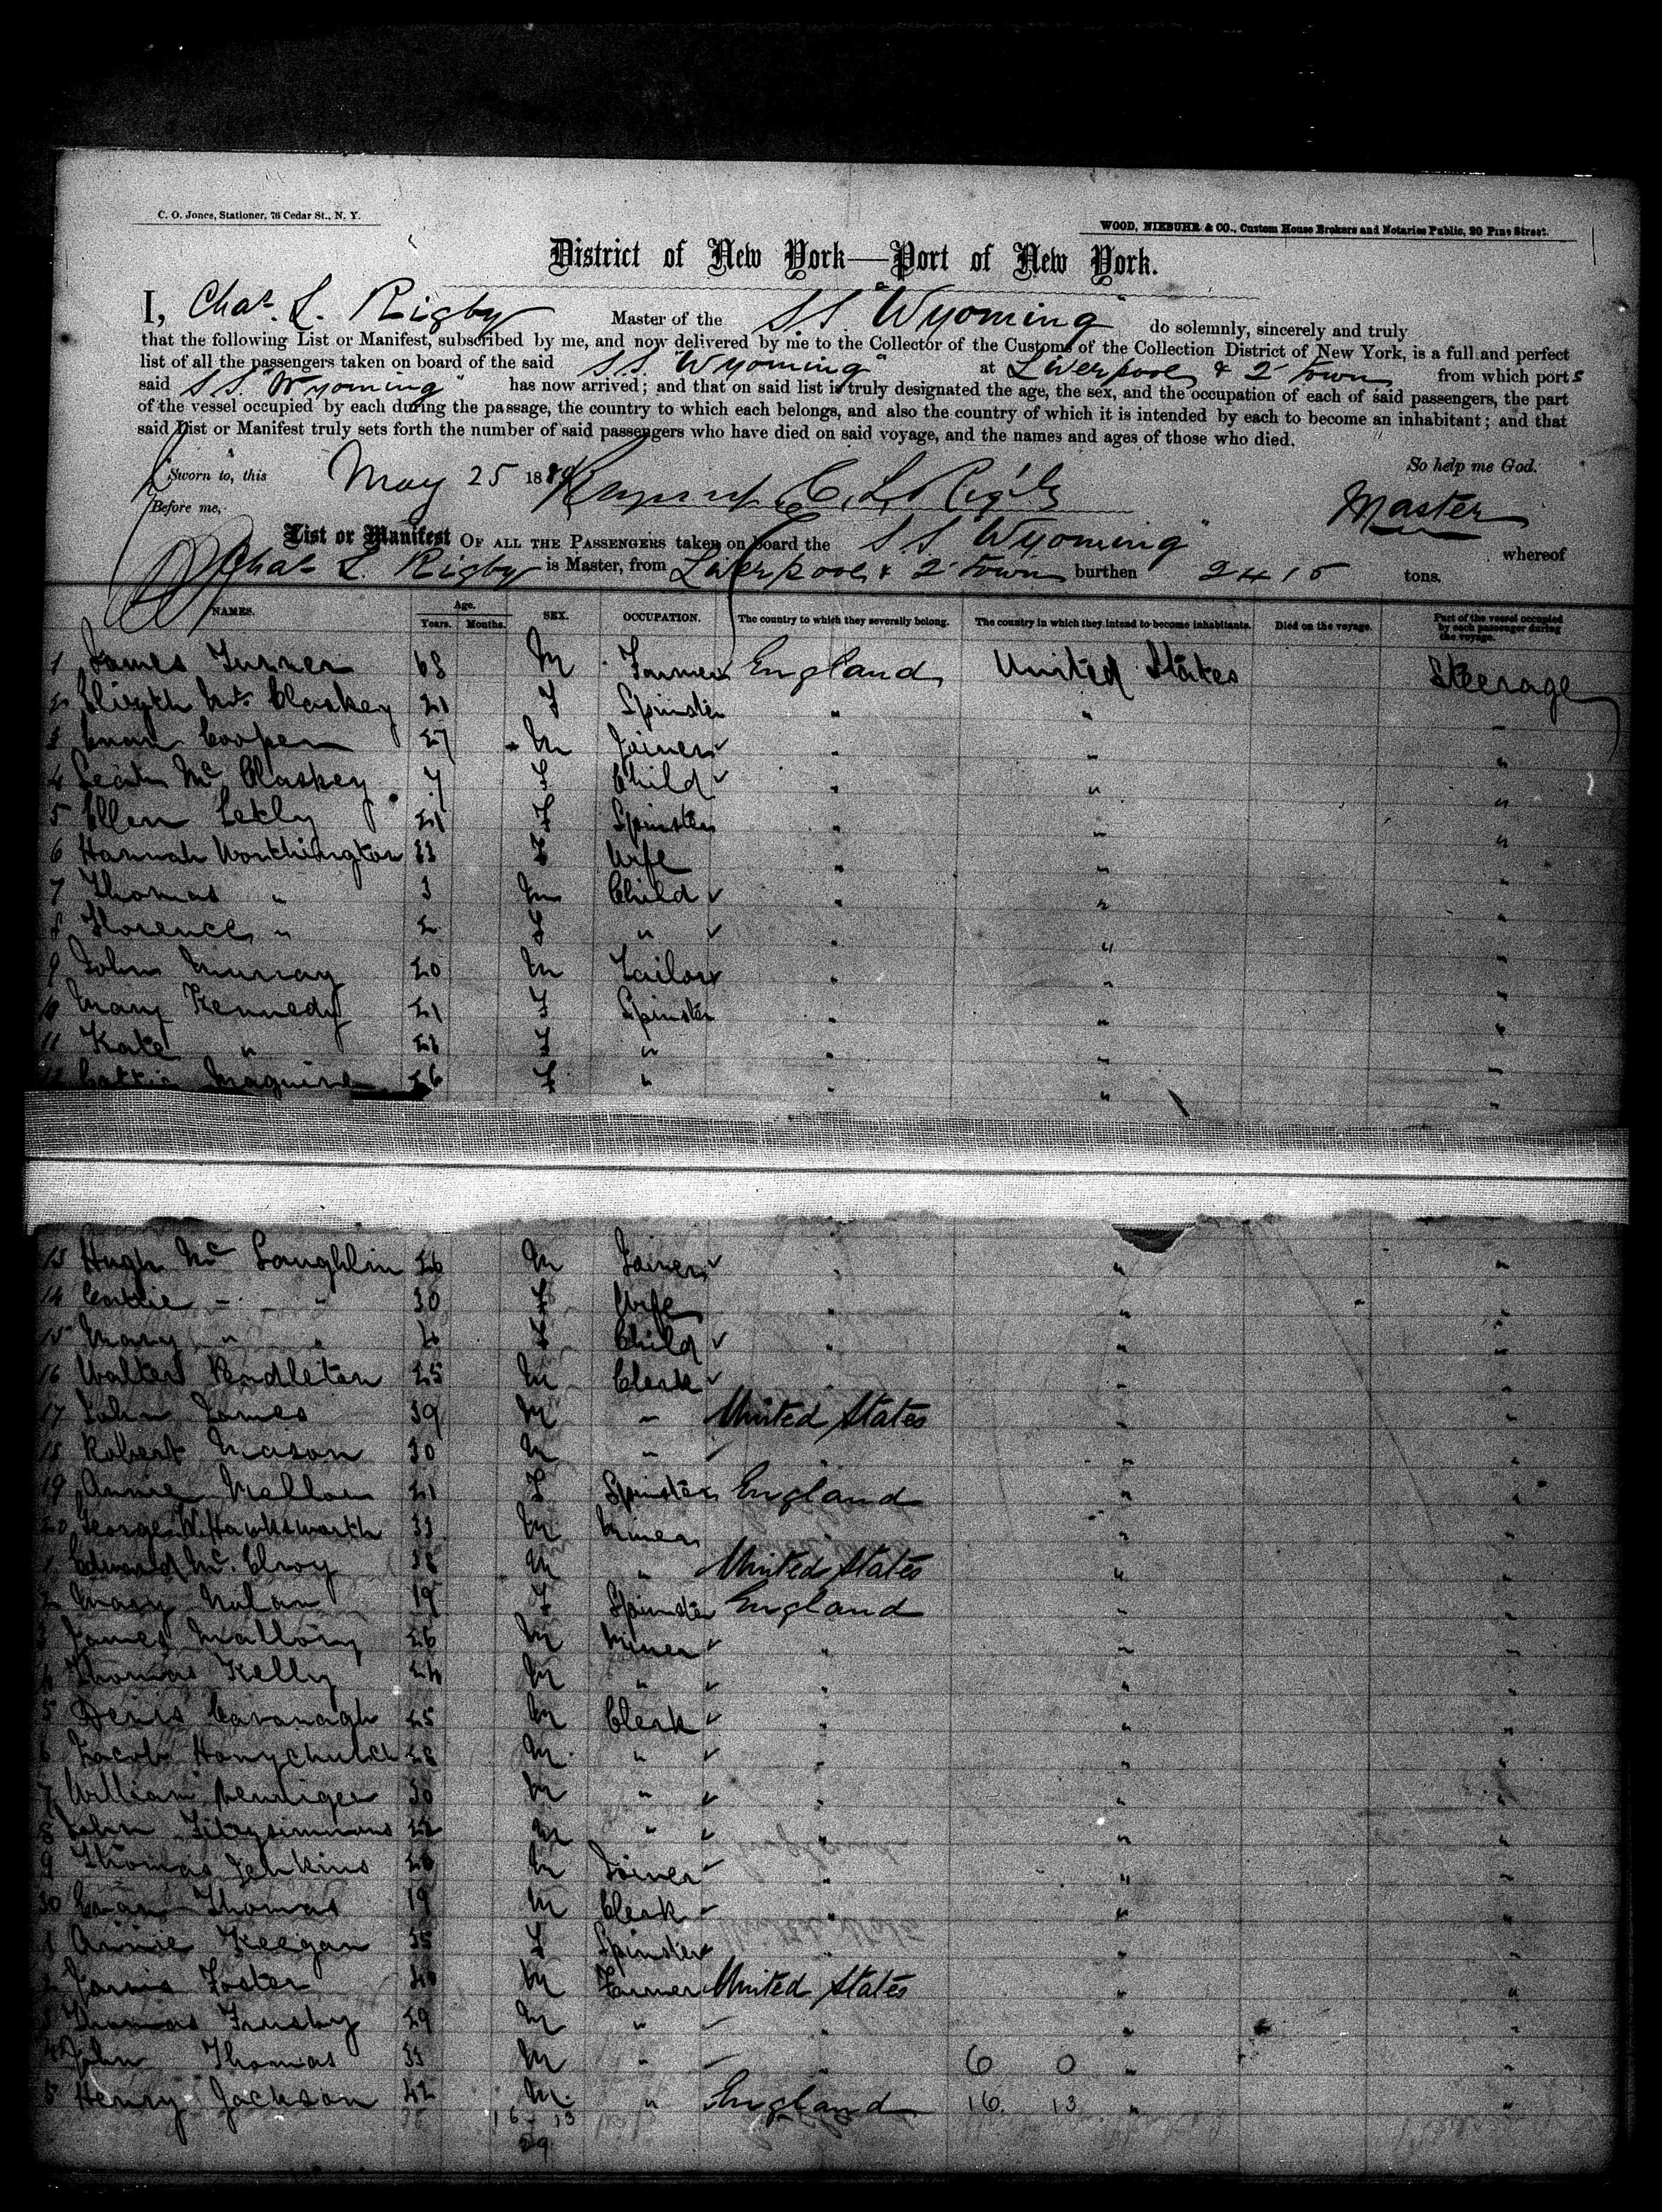 C. O. Jones, Stationer, 76 Cedar St., N. Y.
WOOD, NIEBUHR & CO., Custom House Brokers and Notaries Public, 20 Pine Street.
District of New York—Port of New York.
I, Chas. L. Rigby Master of the S.S. "Wyoming" do solemnly, sincerely and truly
that the following List or Manifest, subscribed by me, and now delivered by me to the Collector of the Customs of the Collection District of New York, is a full and perfect
list of all the passengers taken on board of the said S.S. "Wyoming" at Liverpool & 2 Town from which ports
said S.S. "Wyoming" has now arrived; and that on said list is truly designated the age, the sex, and the occupation of each of said passengers, the part
of the vessel occupied by each during the passage, the country to which each belongs, and also the country of which it is intended by each to become an inhabitant; and that
said List or Manifest truly sets forth the number of said passengers who have died on said voyage, and the names and ages of those who died.
So help me God.
Sworn to, this May 25 18 C. L. Rigby Master
Before me,
List or Manifest OF ALL THE PASSENGERS taken on board the S S "Wyoming" whereof
Chas L. Rigby is Master, from Liverpool & 2 Town burthen 2415 tons.
NAMES. Age. Years. Months. SEX. OCCUPATION. The country to which they severally belong. The country in which they intend to become inhabitants. Died on the voyage. Part of the vessel occupied by each passenger during the voyage.
1 James Turner 68 M Farmer England United States Steerage
2 Mc Claskey 21 F Spinster " " "
3 Cooper 27 M Joiner " " "
4 Mc Claskey 7 F Child " " "
5 Ellen 21 F Spinster " " "
6 Hannah Worthington 33 F Wife " " "
7 Thomas " 3 M Child " " "
8 Florence " 2 F " " " "
9 John Murray 20 M Tailor " " "
10 Mary Kennedy 21 F Spinster " " "
11 Kate " F " " " "
12 Maguire 26 F " " " "
13 Hugh Mc Laughlin 26 M Joiner " " "
14 " 30 F Wife " " "
15 Mary " " F Child " " "
16 Walter Pendleton 25 M Clerk " " "
17 John James 39 M " United States " "
18 Robert Mason 30 M " " " "
19 Annie Mellor 21 F Spinster England " "
20 George W. Hawksworth 33 M Miner " "
1 Edward Mc. Elroy 38 M " United States " "
2 Mary Nolan 19 F Spinster England " "
3 James Mallory 26 M Miner " " "
4 Thomas Kelly 24 M " " " "
5 Denis Cavanagh 25 M Clerk " " "
6 Jacob Honychurch 28 M " " " "
7 William 30 M " " " "
8 John Fitzsimmons 22 M " " " "
9 Thomas Jenkins 26 M Joiner " " "
30 Evan Thomas 19 M Clerk " " "
1 Annie Keegan 35 F Spinster " " "
2 Foster 40 M Farmer United States " "
3 Thomas 29 M " " " "
4 John Thomas 33 M " " 6 0 " "
5 Henry Jackson 42 M " England 16 13 " "
16 - 13
29